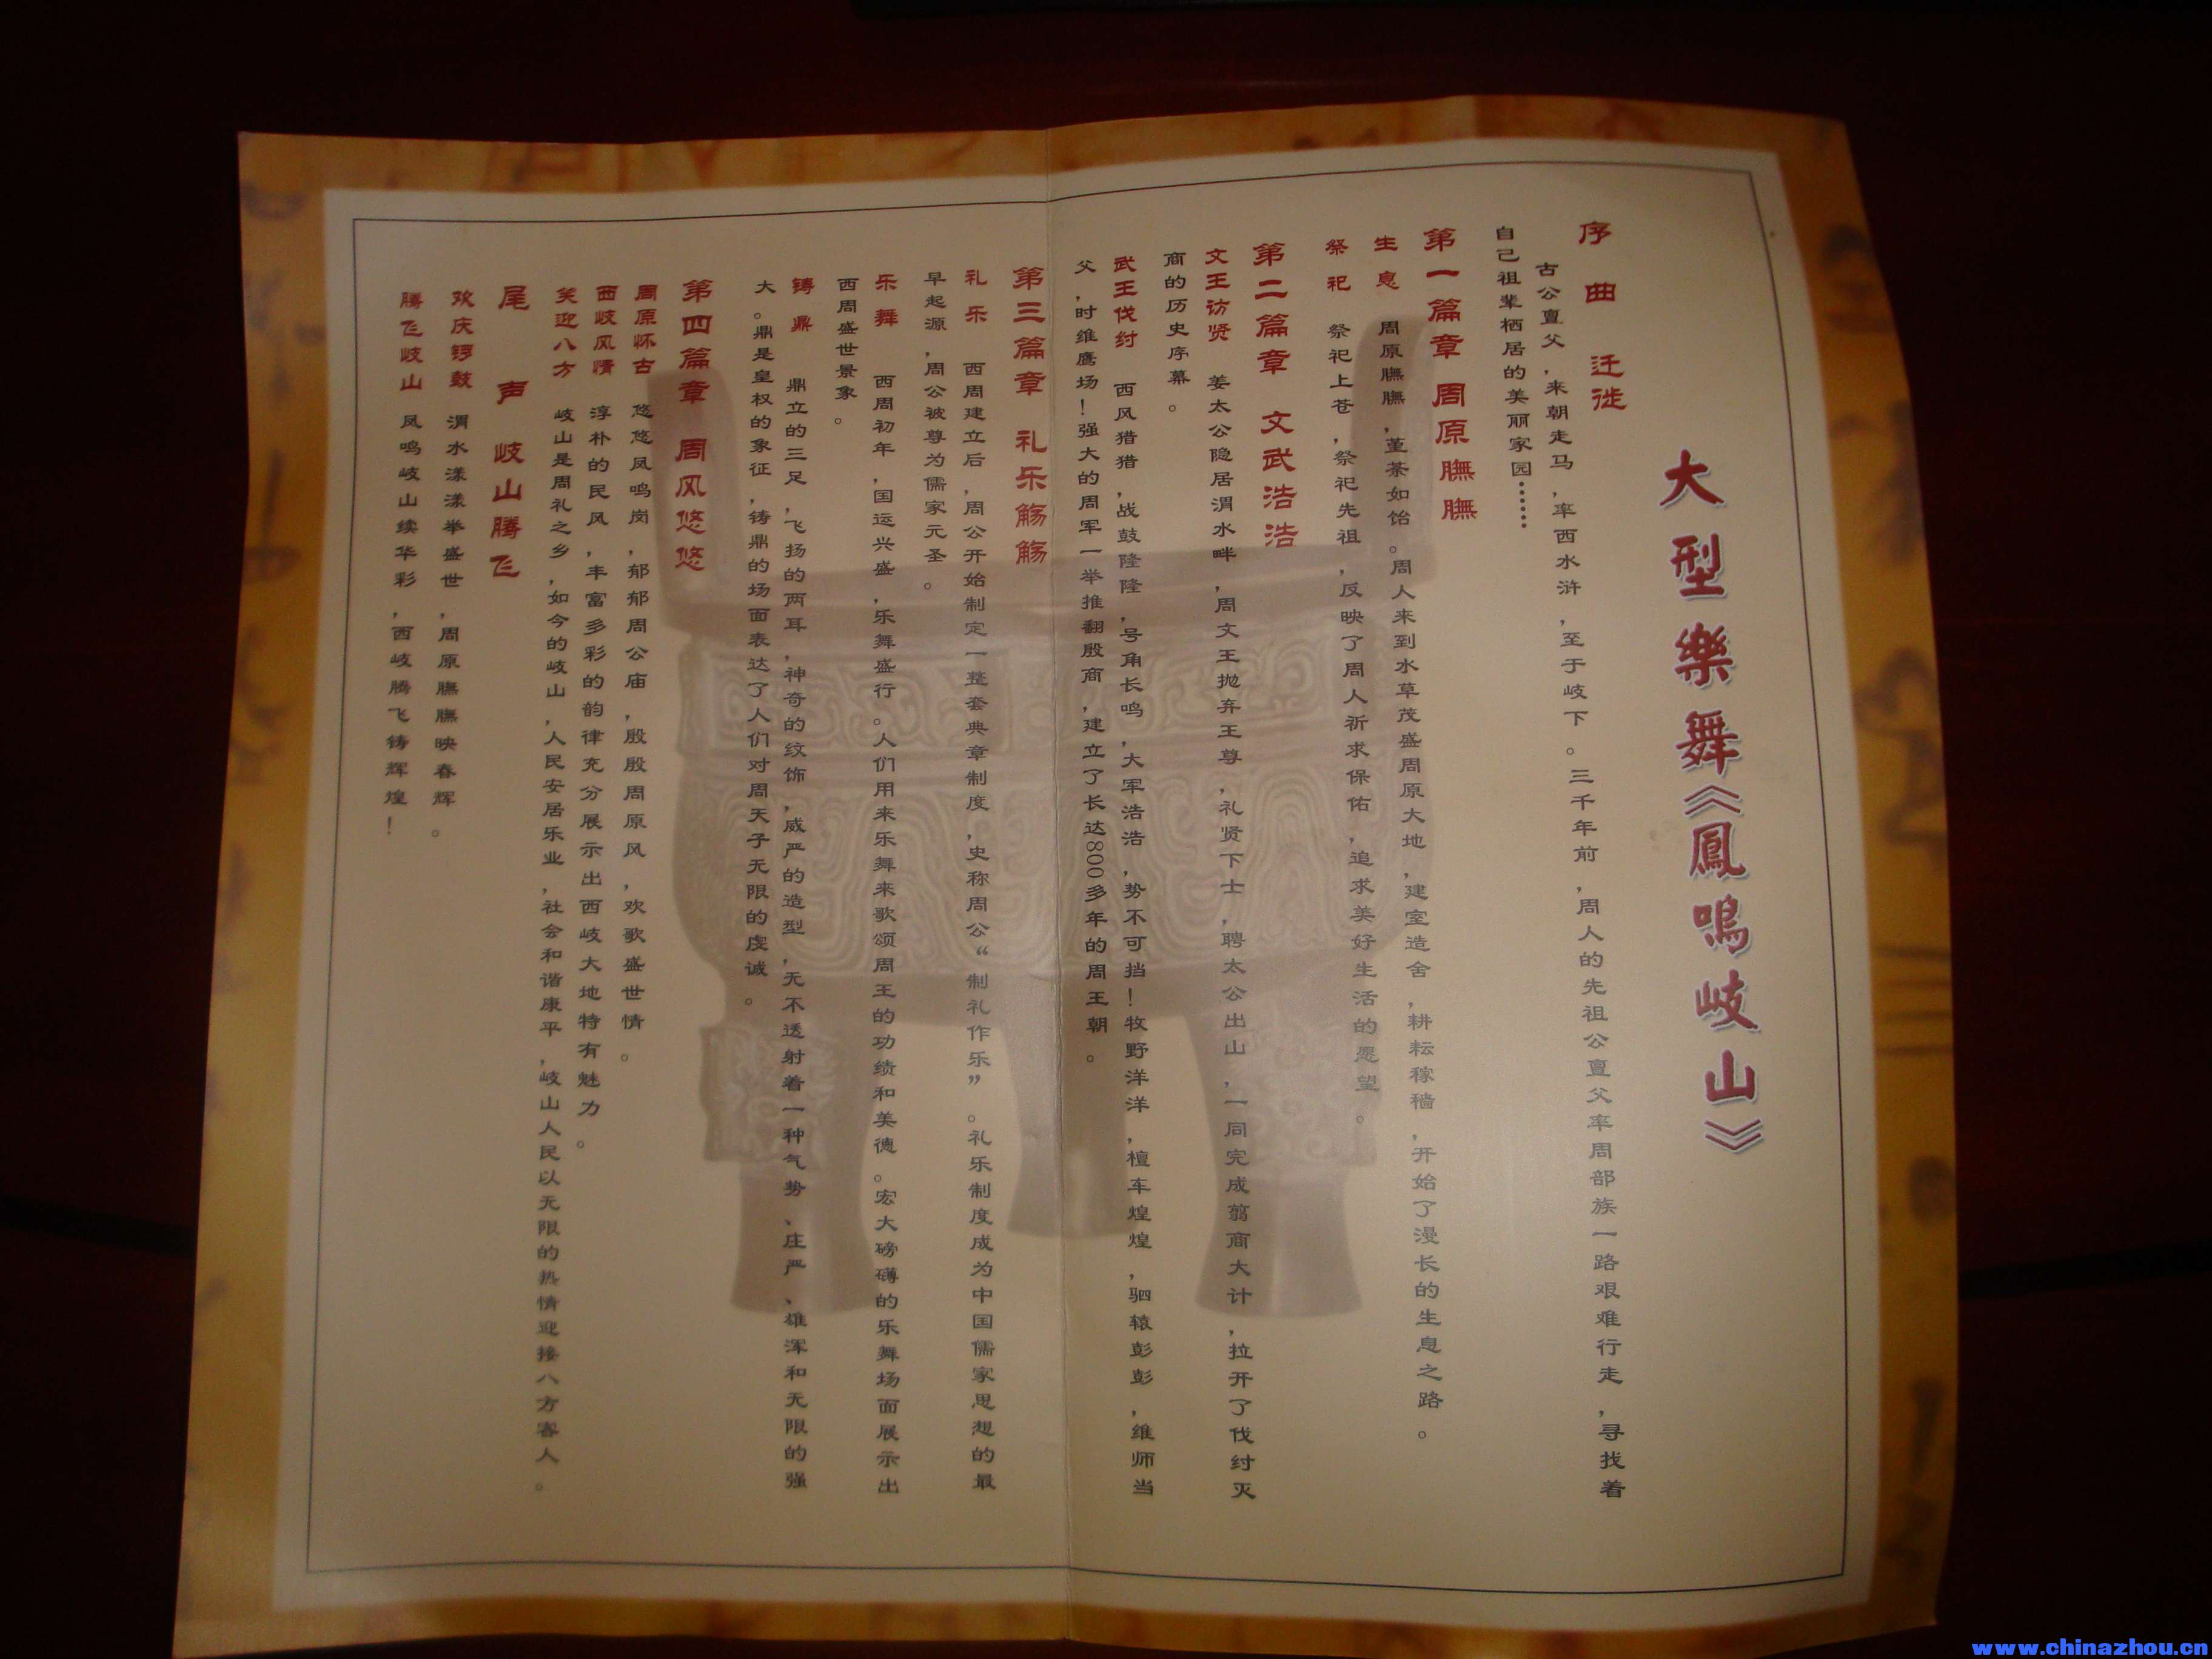 大型樂舞《鳳鳴岐山》
序曲 迁徙
古公亶父，来朝走马，率西水浒，至于岐下。三千年前，周人的先祖公亶父率周部族一路艰难行走，寻找着
自己祖辈栖居的美丽家园……
第一篇章 周原膴膴
生息 周原膴膴，堇荼如饴。周人来到水草茂盛周原大地，建室造舍，耕耘稼穑，开始了漫长的生息之路。
祭祀 祭祀上苍，祭祀先祖，反映了周人祈求保佑，追求美好生活的愿望。
第二篇章 文武浩浩
文王访贤 姜太公隐居渭水畔，周文王抛弃王尊，礼贤下士，聘太公出山，一同完成翦商大计，拉开了伐纣灭
商的历史序幕。
武王伐纣 西风猎猎，战鼓隆隆，号角长鸣，大军浩浩，势不可挡！牧野洋洋，檀车煌煌，驷辕彭彭，维师当
父，时维鹰场！强大的周军一举推翻殷商，建立了长达800多年的周王朝。
第三篇章 礼乐觞觞
礼乐 西周建立后，周公开始制定一整套典章制度，史称周公“制礼作乐”。礼乐制度成为中国儒家思想的最
早起源，周公被尊为儒家元圣。
乐舞 西周初年，国运兴盛，乐舞盛行。人们用来乐舞来歌颂周王的功绩和美德。宏大磅礴的乐舞场面展示出
西周盛世景象。
铸鼎 鼎立的三足，飞扬的两耳，神奇的纹饰，威严的造型，无不透射着一种气势、庄严、雄浑和无限的强
大。鼎是皇权的象征，铸鼎的场面表达了人们对周天子无限的虔诚。
第四篇章 周风悠悠
周原怀古 悠悠凤鸣岗，郁郁周公庙，殷殷周原风，欢歌盛世情。
西岐风情 淳朴的民风，丰富多彩的韵律充分展示出西岐大地特有魅力。
笑迎八方 岐山是周礼之乡，如今的岐山，人民安居乐业，社会和谐康平，岐山人民以无限的热情迎接八方客人。
尾声 岐山腾飞
欢庆锣鼓 渭水漾漾举盛世，周原膴膴映春辉。
腾飞岐山 凤鸣岐山续华彩，西岐腾飞铸辉煌！
www.chinazhou.cn